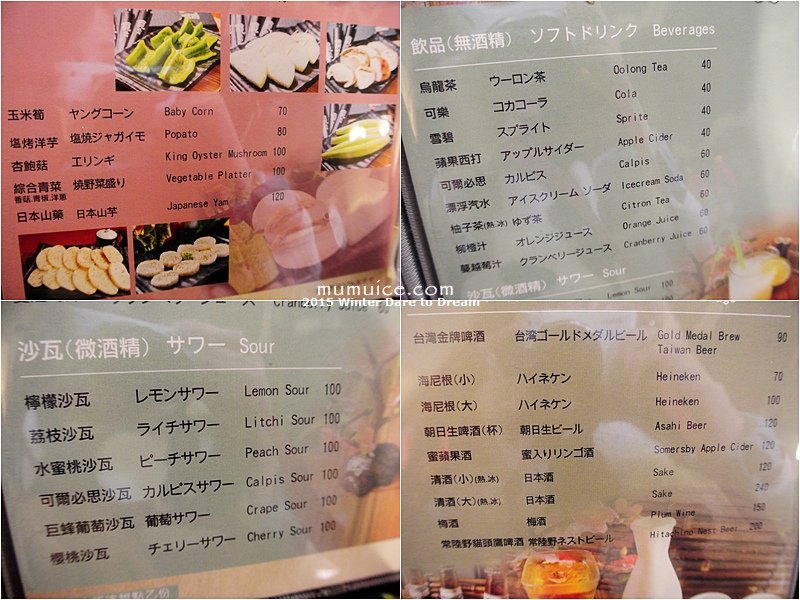 玉米筍 ヤングコーン Baby Corn 70
塩烤洋芋 塩焼ジャガイモ Popato 80
杏鮑菇 エリンギ King Oyster Mushroom 100
綜合青菜 焼野菜盛り Vegetable Platter 100
香菇.青椒.洋蔥
日本山藥 日本山芋 Japanese Yam 120
飲品(無酒精) ソフトドリンク Beverages
烏龍茶 ウーロン茶 Oolong Tea 40
可樂 コカコーラ Cola 40
雪碧 スプライト Sprite 40
蘋果西打 アップルサイダー Apple Cider 40
可爾必思 カルピス Calpis 60
漂浮汽水 アイスクリーム ソーダ Icecream Soda 60
柚子茶(熱.冰) ゆず茶 Citron Tea 60
柳橙汁 オレンジジュース Orange Juice 60
蔓越莓汁 クランベリージュース Cranberry Juice 60
沙瓦(微酒精) サワー Sour
Lemon Sour 100
mumuice.com
2015 Winter Dare to Dream
Cranberry Juice 60
沙瓦(微酒精) サワー Sour
檸檬沙瓦 レモンサワー Lemon Sour 100
荔枝沙瓦 ライチサワー Litchi Sour 100
水蜜桃沙瓦 ピーチサワー Peach Sour 100
可爾必思沙瓦 カルピスサワー Calpis Sour 100
巨蜂葡萄沙瓦 葡萄サワー Crape Sour 100
櫻桃沙瓦 チェリーサワー Cherry Sour 100
台灣金牌啤酒 台湾ゴールドメダルビール Gold Medal Brew 90
Taiwan Beer
海尼根(小) ハイネケン Heineken 70
海尼根(大) ハイネケン Heineken 100
朝日生啤酒(杯) 朝日生ビール Asahi Beer 120
蜜蘋果酒 蜜入りリンゴ酒 Somersby Apple Cider 120
清酒(小)(熱.冰) 日本酒 Sake 120
清酒(大)(熱.冰) 日本酒 Sake 240
梅酒 梅酒 Plum Wine 150
常陸野貓頭鷹啤酒 常陸野ネストビール Hitachino Nest Beer 200